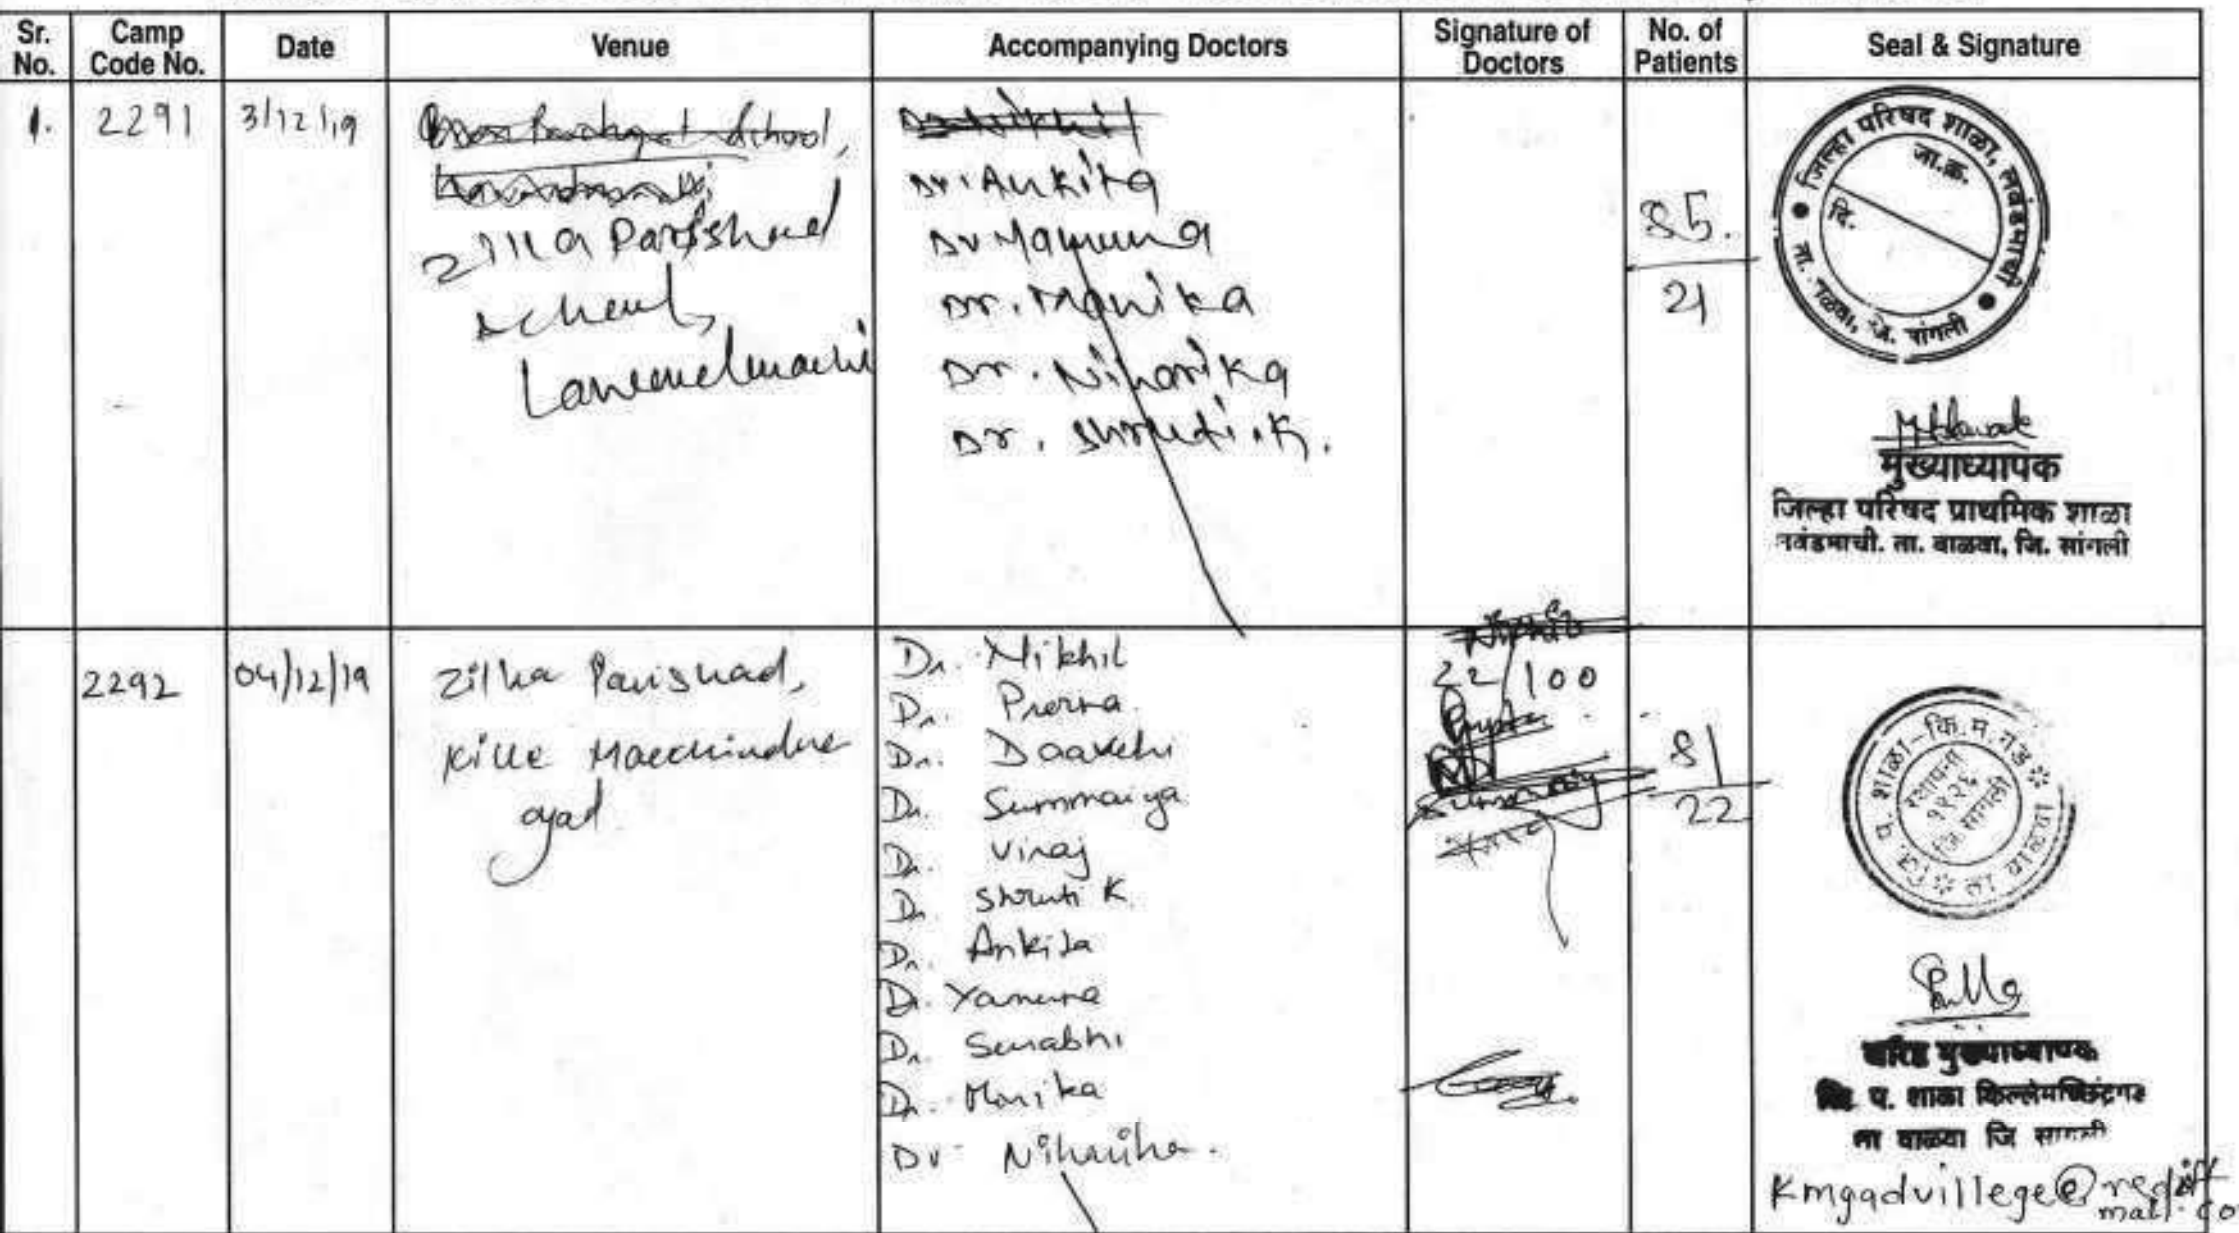 Sr. No. Camp Code No. Date Venue Accompanying Doctors Signature of Doctors No. of Patients Seal & Signature
1. 2291 3/12/19
School,
Zilla Parishad
School,
Dr. Ankita
Dr Yamuna
Dr. Monika
Dr. Niharika
Dr. Shruti.K.
85.
21
जिल्हा परिषद शाळा, लवंडमाची
जा.क्र.
दि.
ता. वाळवा, जि. सांगली
मुख्याध्यापक
जिल्हा परिषद प्राथमिक शाळा
लवंडमाची. ता. वाळवा, जि. सांगली
2292 04/12/19
Zilha Parishad,
Kille Macchindra
gad
Dr. Nikhil
Dr. Prerna
Dr. Daakchi
Dr. Summaiya
Dr. Viraj
Dr. Shruti K.
Dr. Ankita
Dr. Yamuna
Dr. Surabhi
Dr. Monika
Dr Niharika.
22/100
81
22
जि. प. शाळा-कि.म.गड
ता वाळवा
स्थापना
१९२६
जि सांगली
वरिष्ठ मुख्याध्यापक
जि. प. शाळा किल्लेमच्छिंद्रगड
ता वाळवा जि सांगली
Kmgadvillege@rediff
mail.co